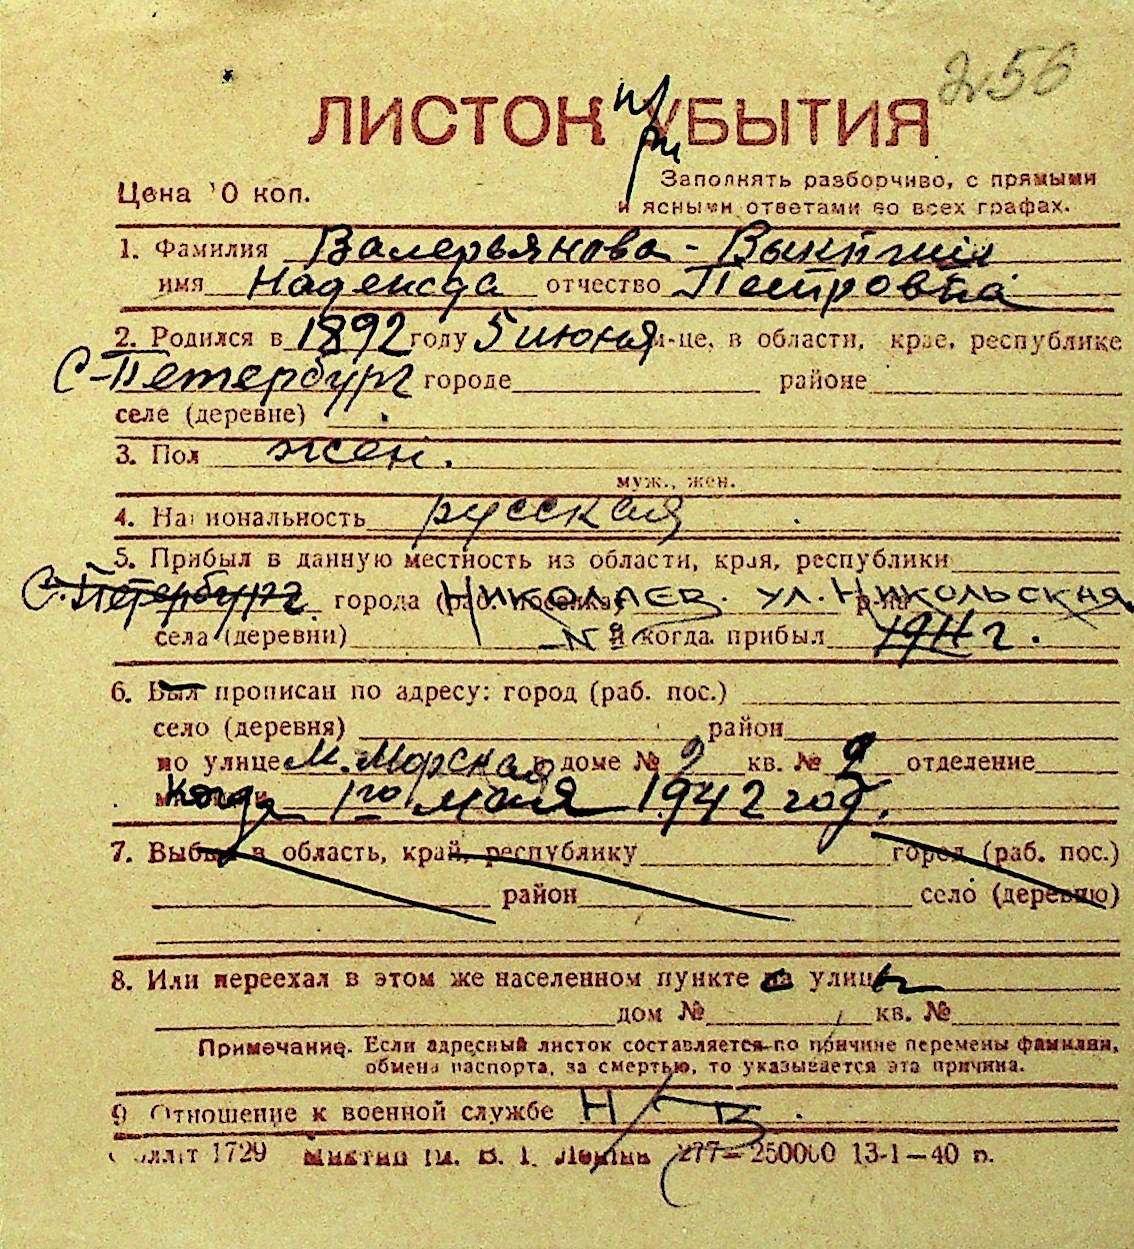 256
ЛИСТОК при УБЫТИЯ
Цена 10 коп.
Заполнять разборчиво, с прямыми
и ясными ответами во всех графах.
1. Фамилия Валерьянова-
имя Надежда отчество Петровна
2. Родился в 1892 году 5 июня м-це, в области, крае, республике
С-Петербург городе районе
селе (деревне)
3. Пол жен.
муж., жен.
4. Национальность русская
5. Прибыл в данную местность из области, края, республики
С.-Петербург города (раб. поселка) Николаев. ул. Никольская р-на
села (деревни) № и когда прибыл 1911 г.
6. Был прописан по адресу: город (раб. пос.)
село (деревня) район
по улице М. Морская в доме № 9 кв. № 9 отделение
милиции когда 1го мая 1942 год.
7. Выбыл в область, край, республику город (раб. пос.)
район село (деревню)
8. Или переехал в этом же населенном пункте с улицы
дом № кв. №
Примечание. Если адресный листок составляется по причине перемены фамилии,
обмена паспорта, за смертью, то указывается эта причина.
9 Отношение к военной службе Н/В.
1729 277—250000 13-1—40 п.